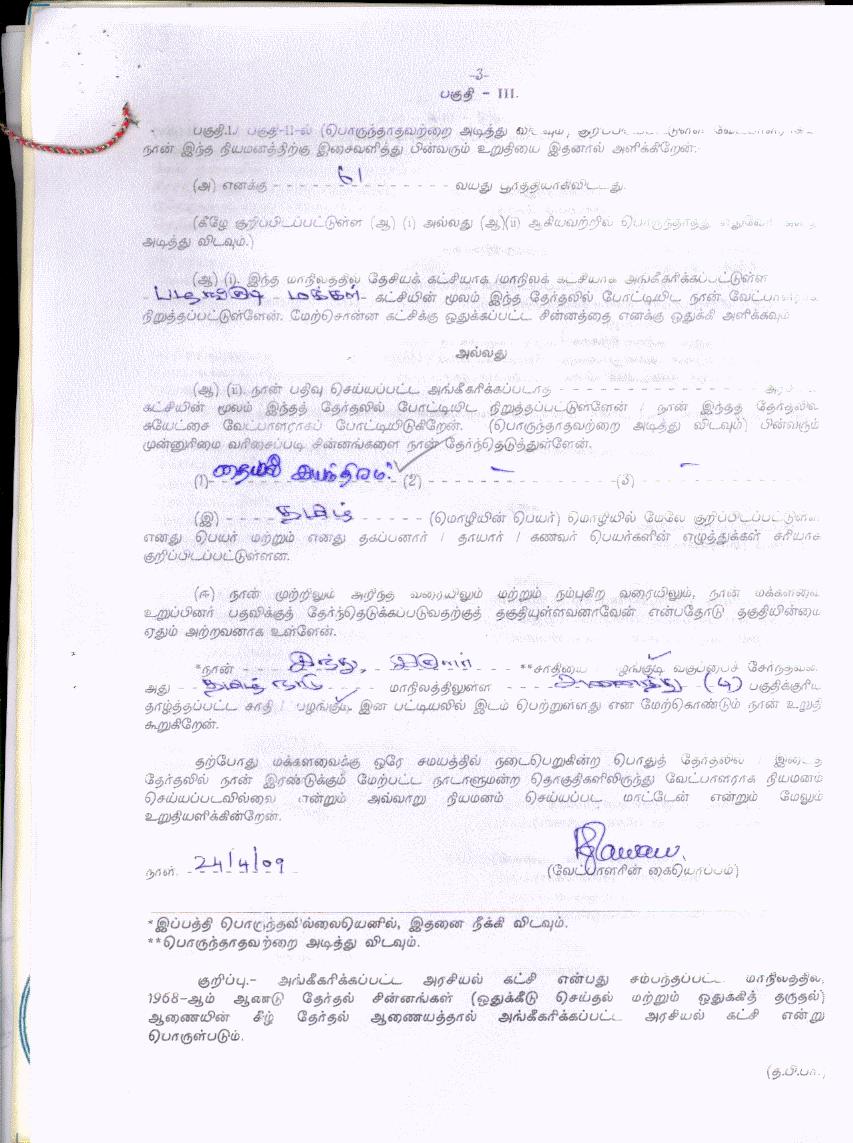 -3-
பகுதி - III.
பகுதி-II-ல் (பொருந்தாதவற்றை அடித்து
நான் இந்த நியமனத்திற்கு இசைவளித்து பின்வரும் உறுதியை இதனால் அளிக்கிறேன்.
(அ) எனக்கு - - - 61 - - - வயது பூர்த்தியாகிவிட்டது.
(கீழே குறிப்பிடப்பட்டுள்ள (ஆ) (i) அல்லது (ஆ)(ii) ஆகியவற்றில்
அடித்து விடவும்.)
(ஆ) (i). இந்த மாநிலத்தில் தேசியக் கட்சியாக /மாநிலக் கட்சியாக அங்கீகரிக்கப்பட்டுள்ள
மக்கள் கட்சியின் மூலம் இந்த தேர்தலில் போட்டியிட நான்
நிறுத்தப்பட்டுள்ளேன். மேற்சொன்ன கட்சிக்கு ஒதுக்கப்பட்ட சின்னத்தை எனக்கு ஒதுக்கி அளிக்கவும்
அல்லது
(ஆ) (ii). நான் பதிவு செய்யப்பட்ட அங்கீகரிக்கப்படாத - - -
கட்சியின் மூலம் இந்தத் தேர்தலில் போட்டியிட நிறுத்தப்பட்டுள்ளேன் / நான் இந்தத் தேர்தலில்
சுயேட்சை வேட்பாளராகப் போட்டியிடுகிறேன். (பொருந்தாதவற்றை அடித்து விடவும்) பின்வரும்
முன்னுரிமை வரிசைப்படி சின்னங்களை நான் தேர்ந்தெடுத்துள்ளேன்.
(1) தையல் இயந்திரம் (2) - (3) -
(இ) - - - தமிழ் - - - (மொழியின் பெயர்) மொழியில் மேலே குறிப்பிடப்பட்டுள்ள
எனது பெயர் மற்றும் எனது தகப்பனார் / தாயார் / கணவர் பெயர்களின் எழுத்துக்கள் சரியாக
குறிப்பிடப்பட்டுள்ளன.
(ஈ) நான் முற்றிலும் அறிந்த வரையிலும் மற்றும் நம்புகிற வரையிலும், நான் மக்களவை
உறுப்பினர் பதவிக்குத் தேர்ந்தெடுக்கப்படுவதற்குத் தகுதியுள்ளவனாவேன் என்பதோடு தகுதியின்மை
ஏதும் அற்றவனாக உள்ளேன்.
*நான் - - - இந்து, - - - **சாதியை பழங்குடி வகுப்பைச் சேர்ந்தவன்
அது - தமிழ் நாடு - - - மாநிலத்திலுள்ள - - - பகுதிக்குரிய
தாழ்த்தப்பட்ட சாதி / பழங்குடி இன பட்டியலில் இடம் பெற்றுள்ளது என மேற்கொண்டும் நான் உறுதி
கூறுகிறேன்.
தற்போது மக்களவைக்கு ஒரே சமயத்தில் நடைபெறுகின்ற பொதுத் தேர்தலில் / இடைத்
தேர்தலில் நான் இரண்டுக்கும் மேற்பட்ட நாடாளுமன்ற தொகுதிகளிலிருந்து வேட்பாளராக நியமனம்
செய்யப்படவில்லை என்றும் அவ்வாறு நியமனம் செய்யப்பட மாட்டேன் என்றும் மேலும்
உறுதியளிக்கின்றேன்.
நாள். 24/4/09
(வேட்பாளரின் கையொப்பம்)
*இப்பத்தி பொருந்தவில்லையெனில், இதனை நீக்கி விடவும்.
**பொருந்தாதவற்றை அடித்து விடவும்.
குறிப்பு.- அங்கீகரிக்கப்பட்ட அரசியல் கட்சி என்பது சம்பந்தப்பட்ட மாநிலத்தில்,
1968-ஆம் ஆண்டு தேர்தல் சின்னங்கள் (ஒதுக்கீடு செய்தல் மற்றும் ஒதுக்கித் தருதல்)
ஆணையின் கீழ் தேர்தல் ஆணையத்தால் அங்கீகரிக்கப்பட்ட அரசியல் கட்சி என்று
பொருள்படும்.
(த.பி.பா.)